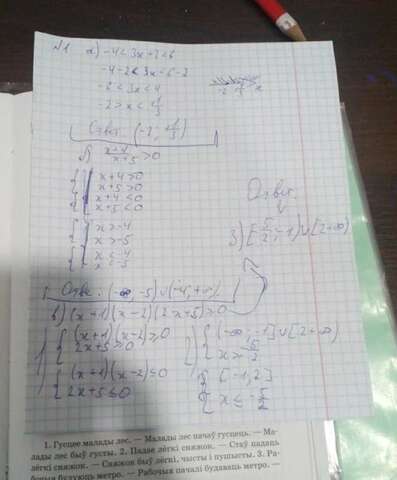 N1 a) -4 < 3x+2 < 6
-4-2 < 3x < 6-2
-6 < 3x < 4
-2 > x < 4/3
-2 4/3 x
Ответ: (-2; 4/3)
б) x+4/x+5 > 0
x+4 > 0
x+5 > 0
x+4 < 0
x+5 < 0
x > -4
x > -5
x < -4
x < -5
Ответ: (-∞, -5) ∪ (-4, +∞)
в) (x+1)(x-2)(2x+5) ≥ 0
1) (x+1)(x-2) ≥ 0
2x+5 ≥ 0
(x+1)(x-2) ≤ 0
2x+5 ≤ 0
2) (-∞, -1] ∪ [2+∞)
x ≥ -5/2
[-1, 2]
x ≤ -5/2
Ответ:
3) [-5/2, -1) ∪ [2+∞)
1. Гусцее малады лес. — Малады лес пачаў гусцець. — Ма-
лады лес быў густы. 2. Падае лёгкі сняжок. — Стаў падаць
лёгкі сняжок. — Сняжок быў лёгкі, чысты і пушысты. 3. Ра-
бочыя будуюць метро. — Рабочыя пачалі будаваць метро. —